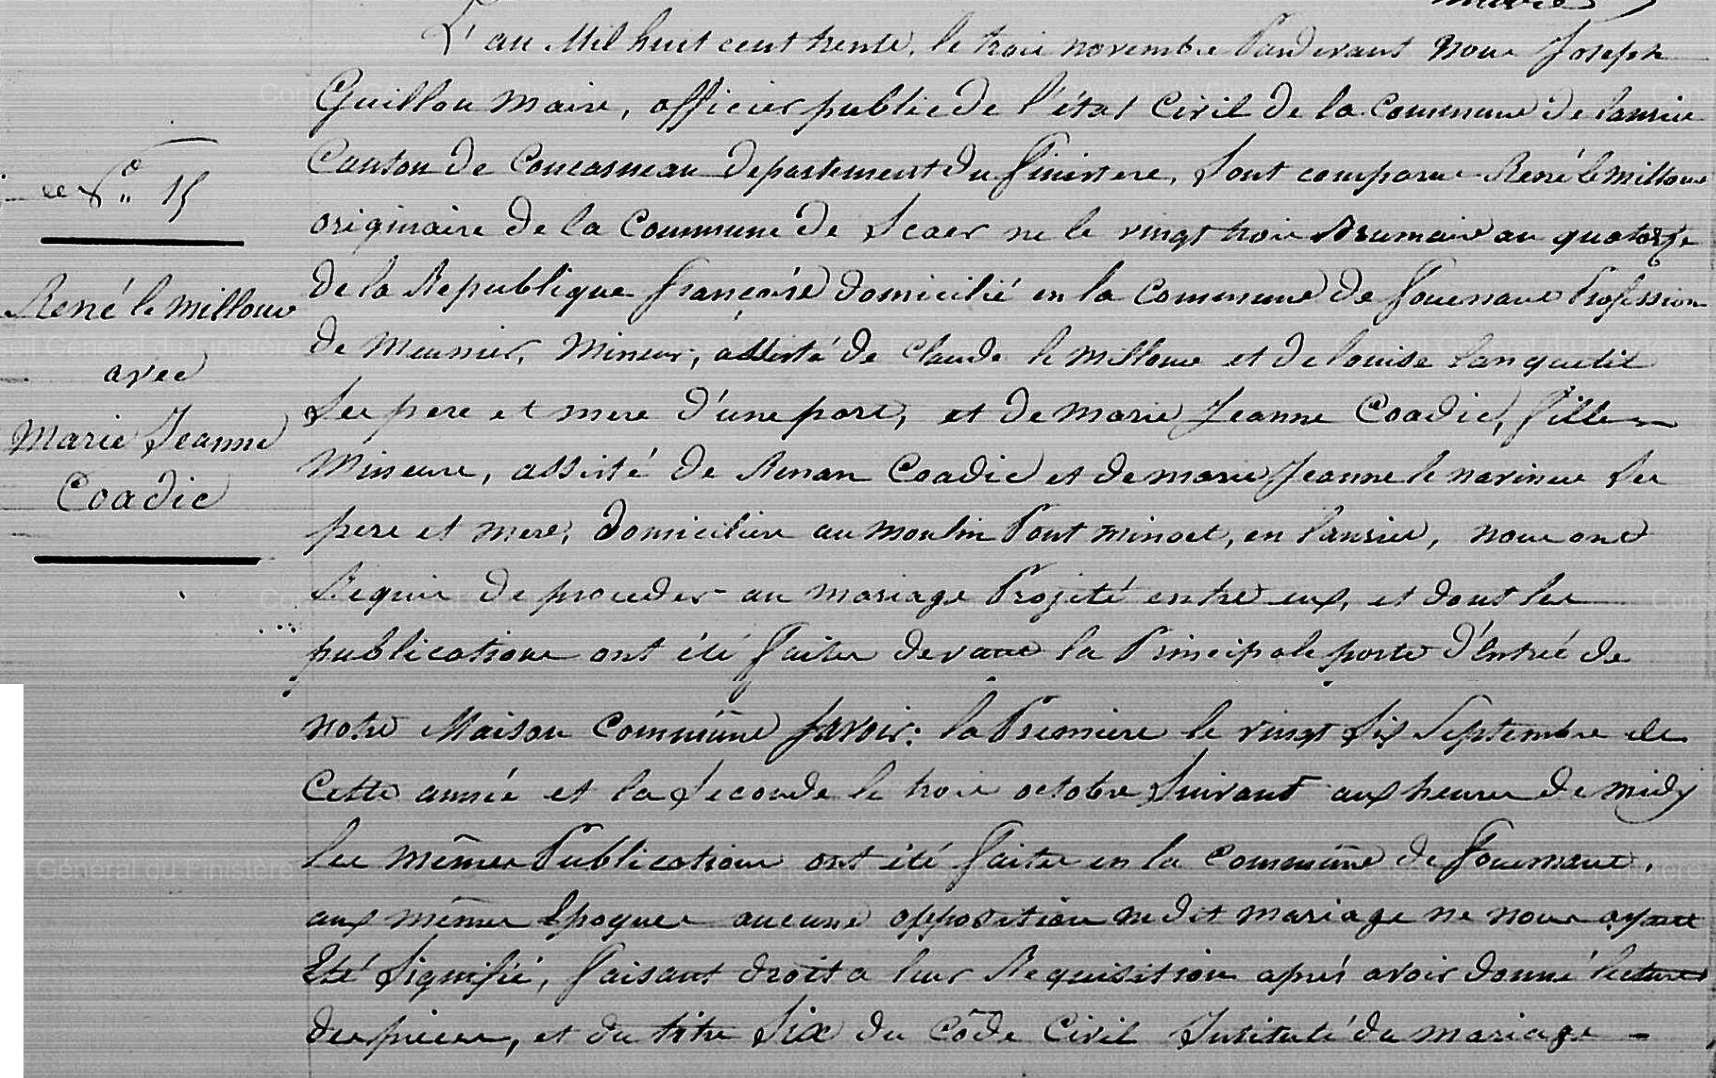 L'an Mil huit cent trente, le trois novembre Pardevant Nous Joseph
Guillou Maire, officier public de l'état Civil de la Commune de Lanriec
Canton de Concarneau departement du finistere, Sont comparu René le Millour
originaire de la Commune de Scaer né le vingt trois Brumaire an quatorze
de la Republique française domicilié en la Commune de fouesnant Profession
de Meunier, Mineur, assisté de Claude le Millour et de louise Tanquetil
Ses pere et mere d'une part, et de marie Jeanne Coadic, fille
Mineure, assisté de Renan Coadic et de marie Jeanne le navineur Ses
pere et mere, domiciliers au moulin Pont minaet, en Lanriec, nous ont
Requis de proceder au mariage Projété entre eux, et dont les
publications ont été faites devant la Principale porte d'Entrée de
notre Maison Commune Savoir: la Premiere le vingt Six Septembre de
Cette année et la Seconde le trois octobre Suivant aux heures de midy
les mêmes Publications ont été faites en la Commune de fouesnant,
aux mêmes Epoques aucune opposition au dit mariage ne nous ayant
Eté Signifié, faisant droit a leur Requisition aprés avoir donné lecture
des pieces, et du titre Six du Code Civil Intitulé du mariage -
N° 15
René le Millour
avec
Marie Jeanne
Coadic